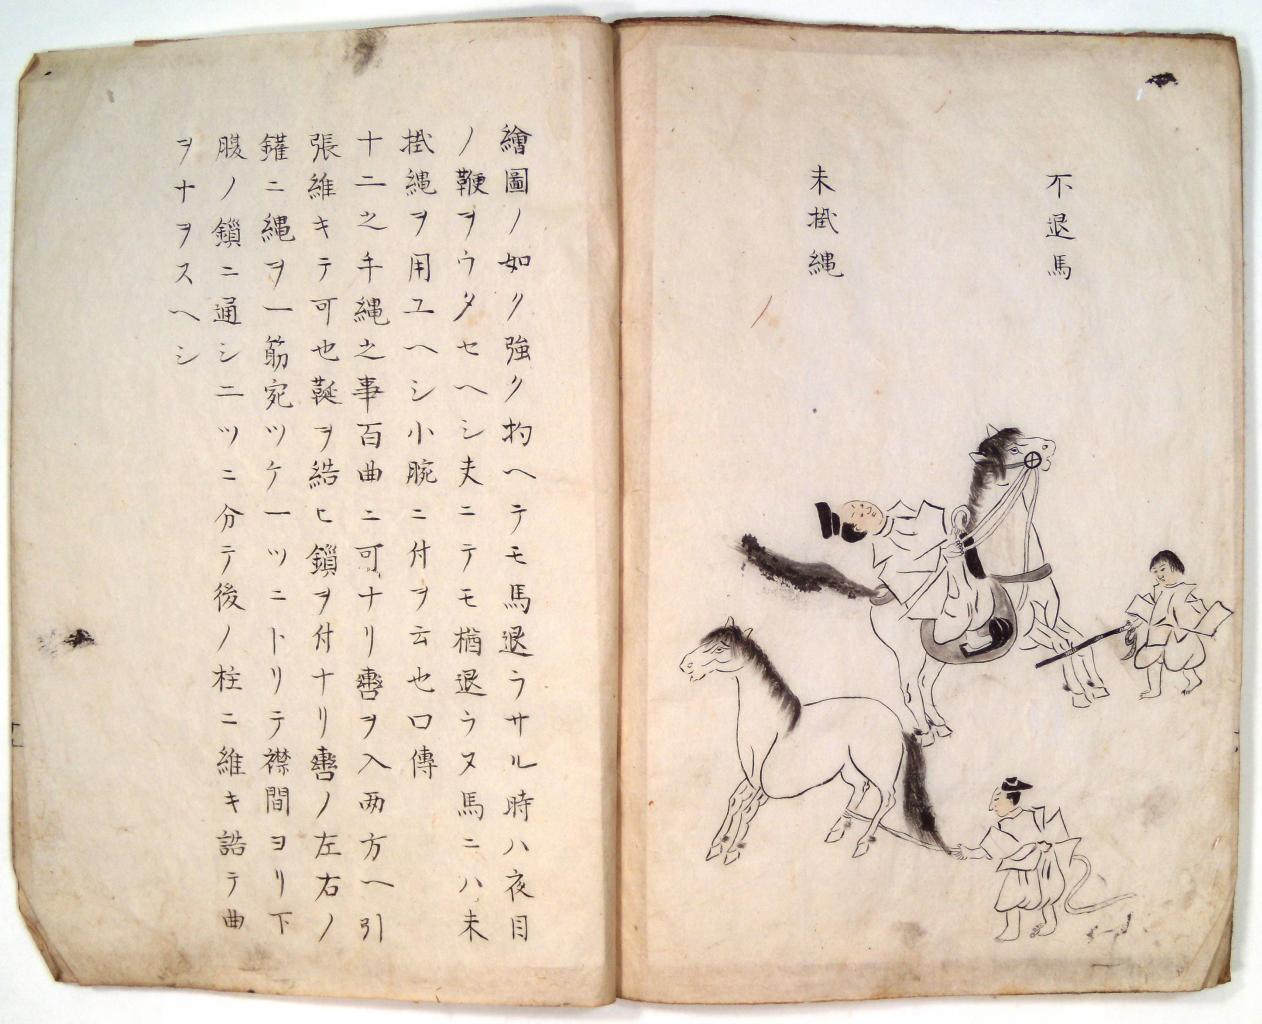 不退馬
未掛縄
繪圖ノ如ク強ク扚ヘテモ馬退ラサル時ハ夜目
ノ鞭ヲウタセヘシ夫ニテモ猶退ラヌ馬ニハ未
掛縄ヲ用ユヘシ小腕ニ付ヲ云也口傳
十二之手縄之事百曲ニ可ナリ轡ヲ入両方ヘ引
張維キテ可也鞋ヲ結ヒ鎖ヲ付ナリ轡ノ左右ノ
ニ縄ヲ一筋宛ツケ一ツニトリテ襟間ヨリ下
腹ノ鎖ニ通シ二ツニ分テ後ノ柱ニ維キ誥テ曲
ヲナヲスヘシ